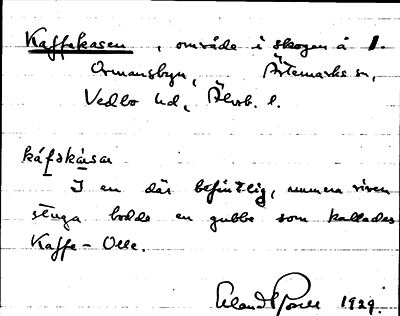 Kaffekasen, område i skogen å 1.
Ormansbyn, Ärtemarks sn,
Vedbo hd, Älvsb. l.
káfəkàsar
I en där befintlig, numera riven
stuga bodde en gubbe som kallades
Kaffe-Olle.
1929.